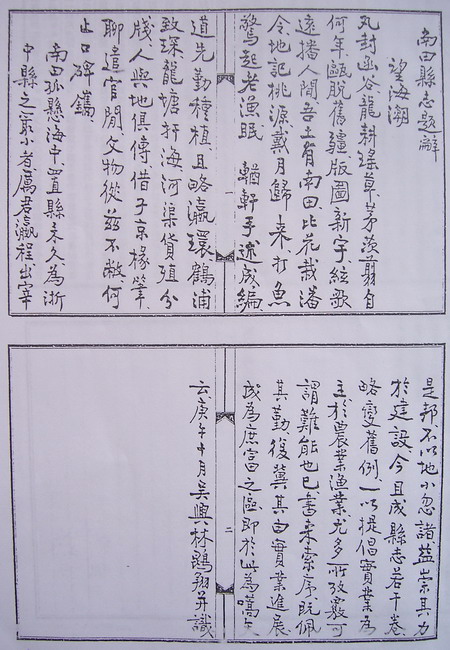 南田縣志題辭
望海潮
丸封函谷龍耕瑤草茅茨翦自
何年甌脫舊疆版圖新宇絃歌
遠播人間吾土有南田比花栽潘
令地記桃源戴月歸來打魚
驚起老漁眠 輶軒手述成編
一
道先勤種植且略瀛環鶴浦
致琛龍塘扞海河渠貨殖分
牋人與地俱傳借子京椽筆
聊遣官閒文物從茲不敝何
止口碑鐫
南田孤懸海中置縣未久為浙
中縣之冣小者厲君瀛程出宰
是邦不以地小忽諸益崇其力
於建設今且成縣志若干卷
略變舊例一以提倡實業為
主於農業漁業尤多所攷覈可
謂難能也已書來索序既佩
其勤復冀其由實業進展
成為庶富之區即於此為嚆矢
二
云庚午十月吳興林鵾翔并識